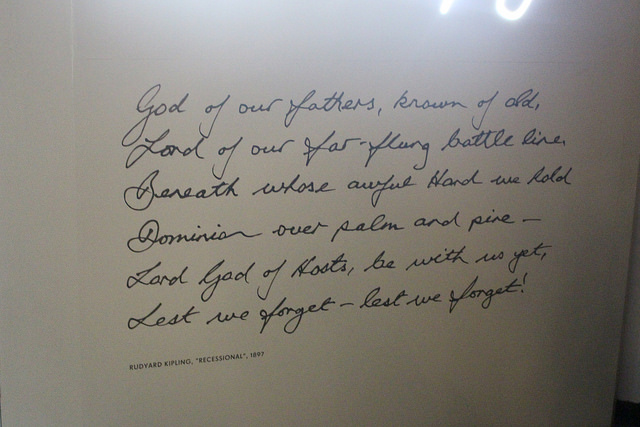 God of our fathers, known of old,
Lord of our far-flung battle line,
Beneath whose awful Hand we hold
Dominion over palm and pine —
Lord God of Hosts, be with us yet,
Lest we forget – lest we forget!
RUDYARD KIPLING, "RECESSIONAL", 1897